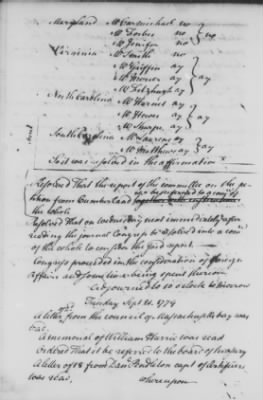 Maryland Mr Carmichael no
Mr Forbes no } no
Mr Jenifer no
Virginia Mr Smith no
Mr Griffin ay } ay
Mr Mercer ay
Mr Fitzhugh ay
North Carolina Mr Harnet ay
Mr Hewes ay } ay
Mr Sharpe ay
South Carolina Mr Laurens ay } ay
Mr Matthews ay
So it was resolved in the affirmative
Resolved That the report of the committee on the pe-
tition from Cumberland be referred to a com of
the whole
Resolved That on wednesday next immediately after
reading the journal Congress be resolved into a com
of the whole to consider the said report
Congress proceeded in the consideration of foreign
affairs and some time being spent thereon
Adjourned to 10 o Clock to morrow
Tuesday Sept 21. 1779
A letter from the council of Massachusetts bay was
read
A memorial of William Harris was read
Ordered That it be referred to the board of treasury
A letter of 18 from Dan Pendleton capt of Artificers
was read.
Whereupon